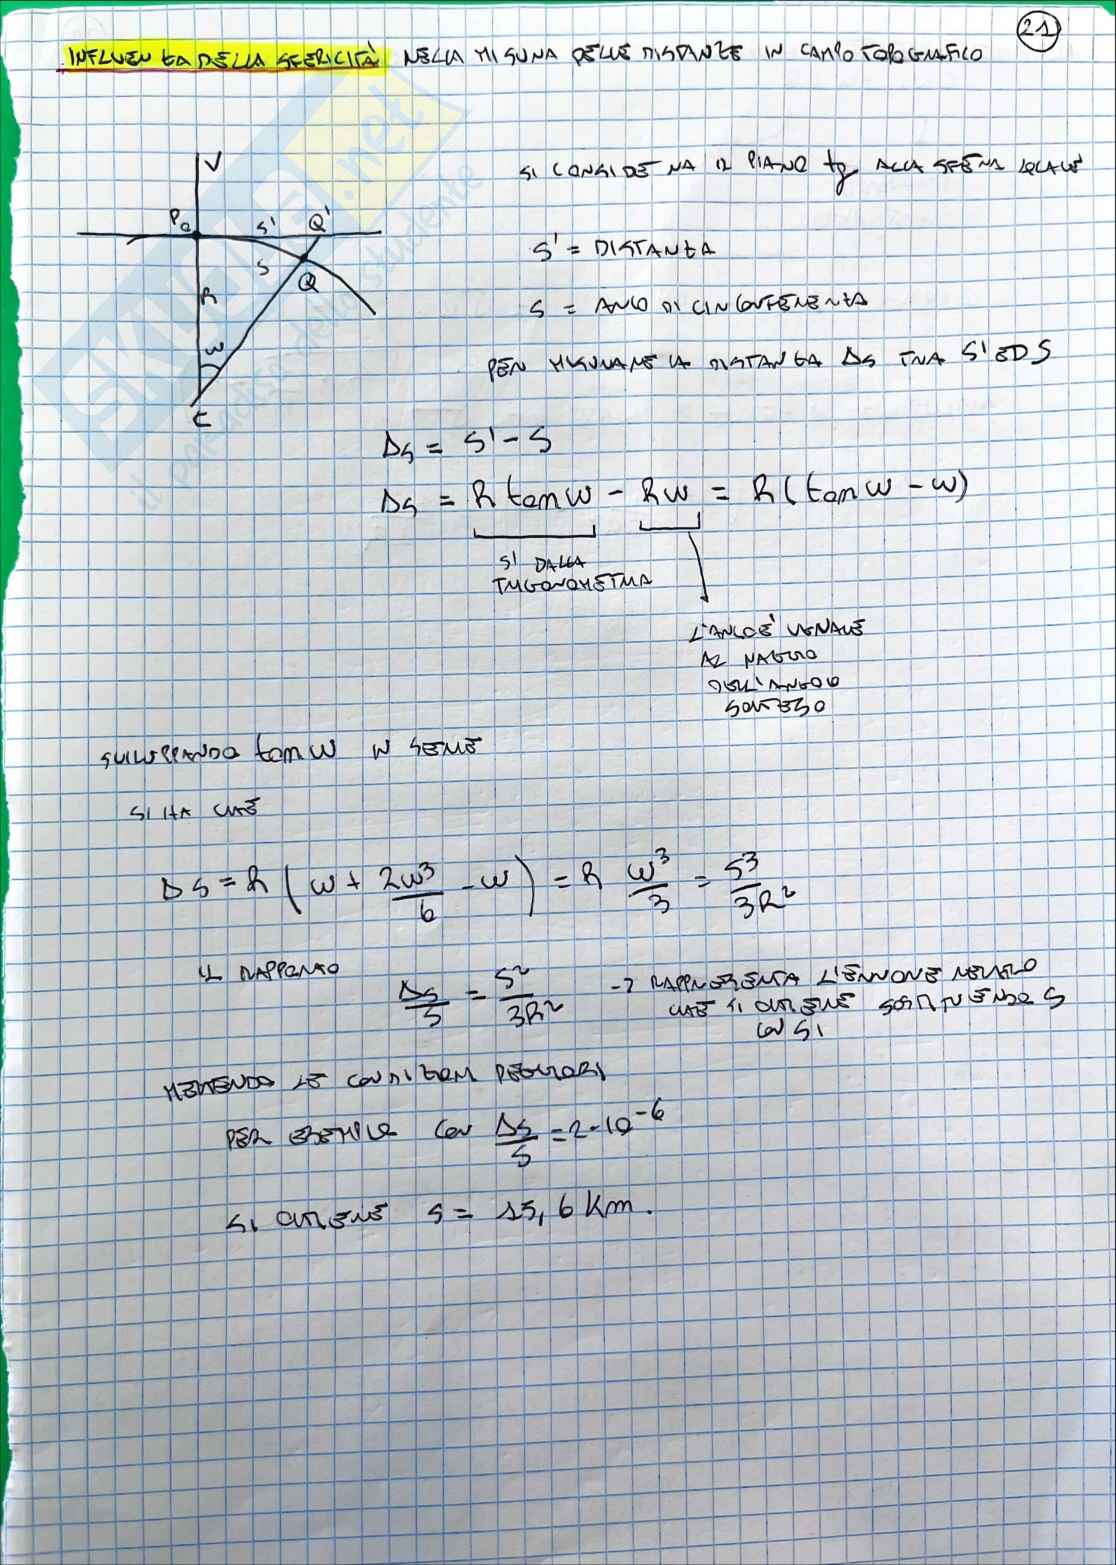 21
INFLUENZA DELLA SFERICITÀ NELLA MISURA DELLE DISTANZE IN CAMPO TOPOGRAFICO
V
SI CONSIDERA IL PIANO tg ALLA SFERA LOCALE
P₀ S' Q'
S' = DISTANZA
S Q
R
S = ARCO DI CIRCONFERENZA
ω
PER MISURARE LA DISTANZA ΔS TRA S' ED S
C
ΔS = S' - S
ΔS = R tan ω - Rω = R (tan ω - ω)
S' DALLA
TRIGONOMETRIA
L'ARCO È UGUALE
AL RAGGIO
DELL'ANGOLO
SOTTESO
SVILUPPANDO tan ω IN SERIE
SI HA CHE
ΔS = R (ω + 2ω³/6 - ω) = R ω³/3 = S³/3R²
IL RAPPORTO ΔS/S = S²/3R² → RAPPRESENTA L'ERRORE RELATIVO
CHE SI OTTIENE SOSTITUENDO S
CON S'
METTENDO LE CONDIZIONI PEGGIORI
PER ESEMPIO CON ΔS/S = 2·10⁻⁶
SI OTTIENE S = 15,6 Km.
SKUOLA.net
il paradiso dello studente